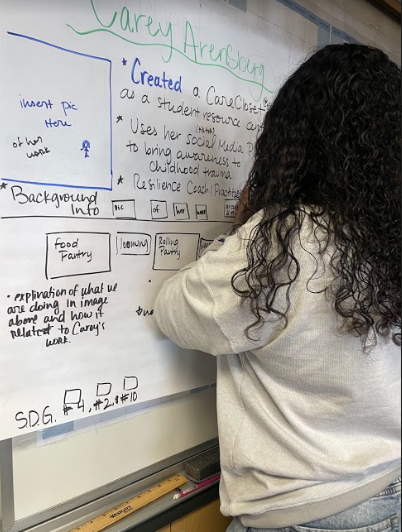 Carey Arensberg
insert pic
Here
of her
work
* Created a Care Closet
as a student resource
* Uses her Social Media
(tiktok)
to bring awareness to
childhood trauma
* Resilience Coach/
* Background
Info
Pic
of
her
work
Food
Pantry
Rolling
Pantry
• explination of what we
are doing in image
above and how it
relates to Carey's
work.
S.D.G. #4, #2, #10